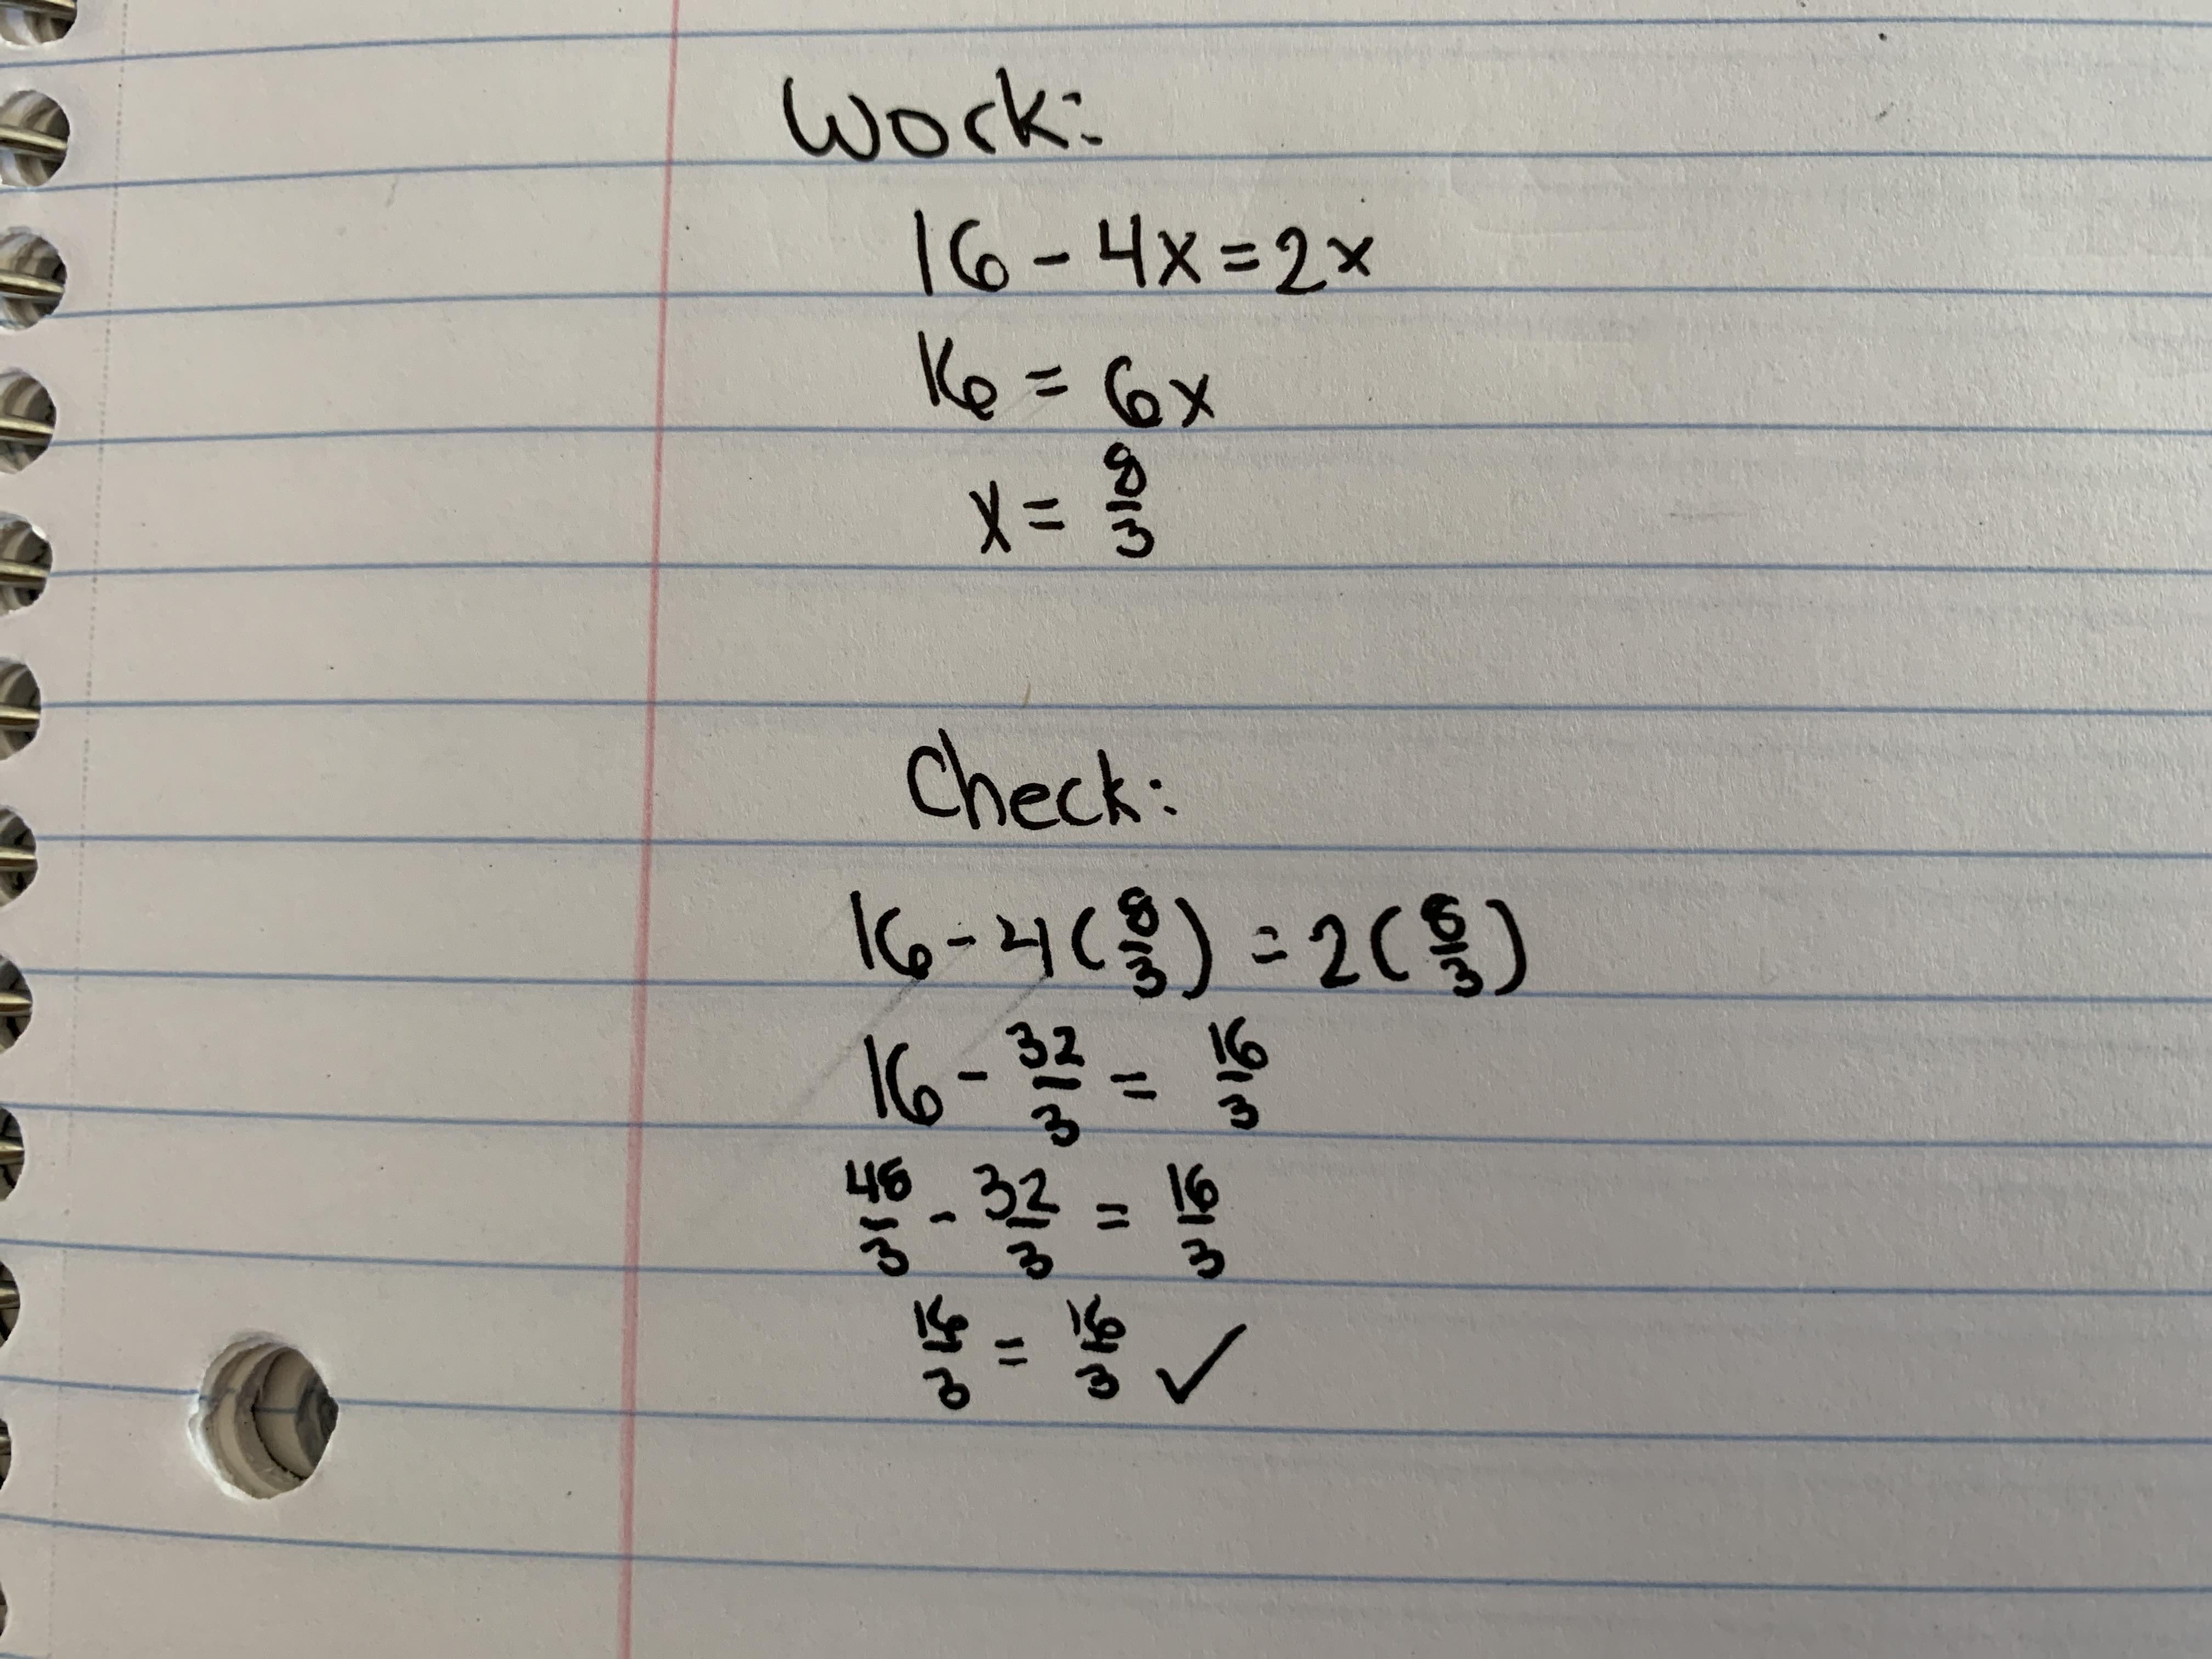 Work:
16 - 4x = 2x
16 = 6x
x = 8/3
Check:
16 - 4(8/3) = 2(8/3)
16 - 32/3 = 16/3
48/3 - 32/3 = 16/3
16/3 = 16/3 ✓